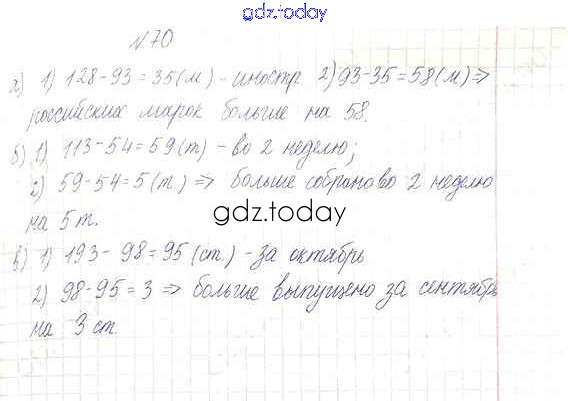 gdz.today
№70
а) 1) 128-93=35(м) - иностр. 2) 93-35=58(м)⇒
российских марок больше на 58.
б) 1) 113-54=59(т) - во 2 неделю;
2) 59-54=5(т.) ⇒ больше собрано во 2 неделю
на 5 т.
gdz.today
в) 1) 193-98=95(ст.) - за октябрь
2) 98-95=3 ⇒ больше выпущено за сентябрь
на 3 ст.
gdz.today